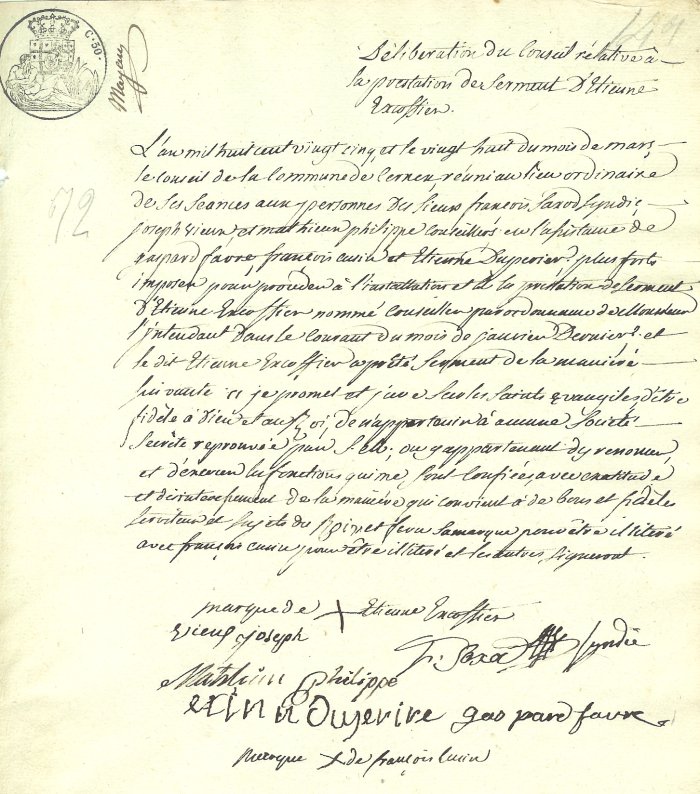 C. 50.
Mazam
72
Déliberation du Conseil rélative à
la prestation de Serment D'Etienne
Excoffier.
L'an mil huit cent vingt cinq, et le vingt huit du mois de mars,
le conseil de la Commune de Cernex, réuni au lieu ordinaire
de ses séances aux personnes des sieurs françois Sarod syndic
joseph vieux et mathieu philippe conseillers en l'assistance de
gaspard favre françois cusin et Etienne Duperier plus forts
imposés pour proceder à l'installation et à la prestation de Serment
D'Etienne Excoffier nommé conseiller par ordonnance de Monsieur
l'intendant dans le courant du mois de janvier Dernier et
le dit Etienne Excoffier a prêté Serment de la maniéré
suivante je promet et jure sur les Saints Evangiles d'être
fidèle à Dieu et au Roi, de n'appartenir à aucune Société
Secrète reprouvée par S. M. ou y appartenant d'y renoncer,
et d'exercer les fonctions qui me sont Confiées, avec exatitude
et désintéressement de la manière qui convient à de bons et fidèles
serviteur et sujets du Roi, et fera sa marque pour être illiteré
avec françois cusin pour être illiteré et les autres signeront.
marque de + Etienne Excoffier
vieux joseph
syndic
Mathieu philippe
gaspard favre
marque + de françois Cusin